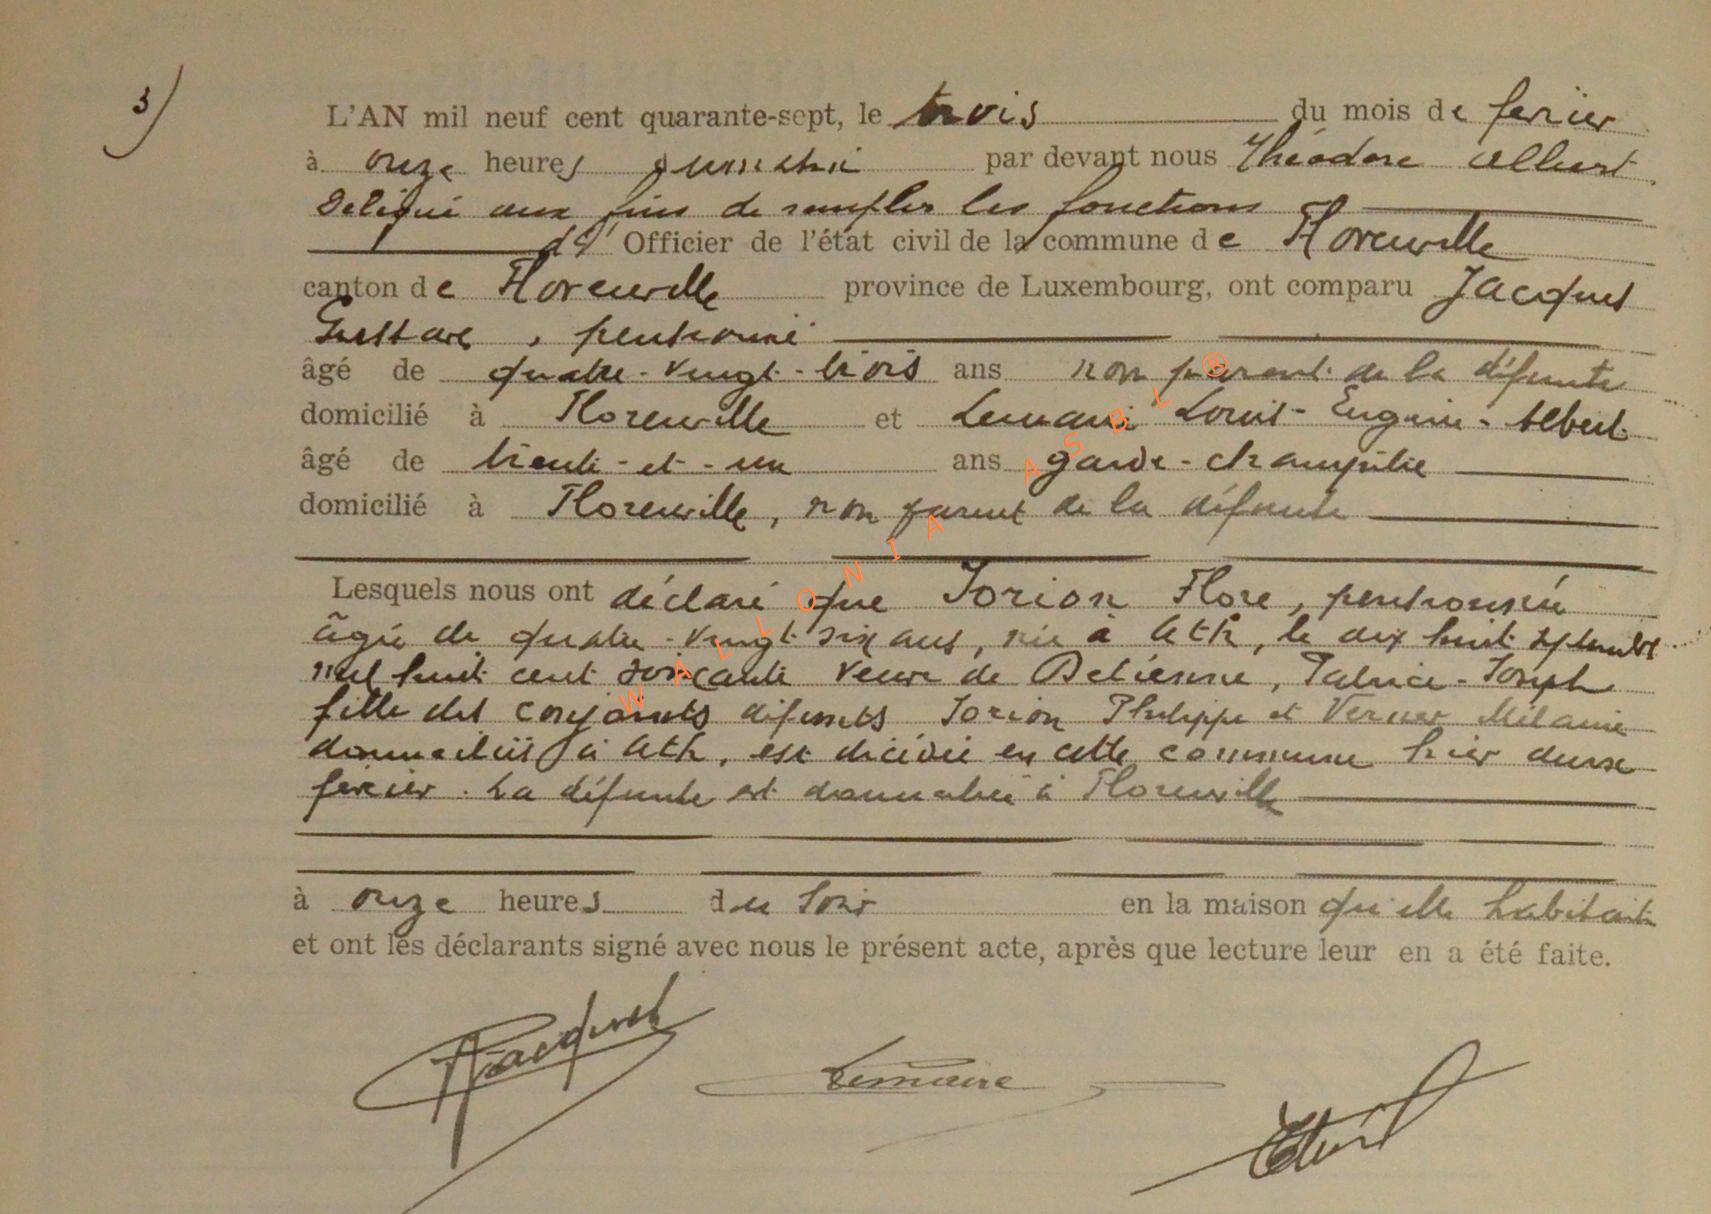 3)
L'AN mil neuf cent quarante-sept, le trois du mois de ferier
à onze heures du matin par devant nous Théodore Albert
Délégué aux fins de remplir les fonctions
d' Officier de l'état civil de la commune de Florenville
canton de Florenville province de Luxembourg, ont comparu Jacques
Gustave, pensionné
âgé de quatre-vingt-trois ans non parent de la défunte
domicilié à Florenville et Lemaire Louis-Eugène-Albert
âgé de trente-et-un ans garde-champêtre
domicilié à Florenville, non parent de la défunte
Lesquels nous ont déclaré que Jorion Flore, pensionnée
âgée de quatre-vingt six ans, née à Ath, le dix huit septembre
mil huit cent soixante veuve de Détienne, Patrice-Joseph
fille des conjoints défunts Jorion Philippe et Mélanie
domiciliés à Ath, est décédée en cette commune hier deux
ferier. La défunte est domiciliée à Florenville
à onze heures du soir en la maison qu'elle habitait
et ont les déclarants signé avec nous le présent acte, après que lecture leur en a été faite.
Jacques
Lemaire
WALLONIA ASBL ®